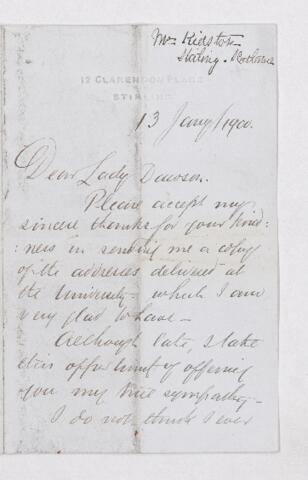 Mr Kidston
Stirling.
12 CLARENDON PLACE
STIRLING
13 Jany/1900.
Dear Lady Dawson.
Please accept my
sincere thanks for your kind-
:ness in sending me a copy
of the addresses delivered at
the University - which I am
very glad to have -
Although late, I take
this opportunity of offering
you my true sympathy -
I do not think I ever